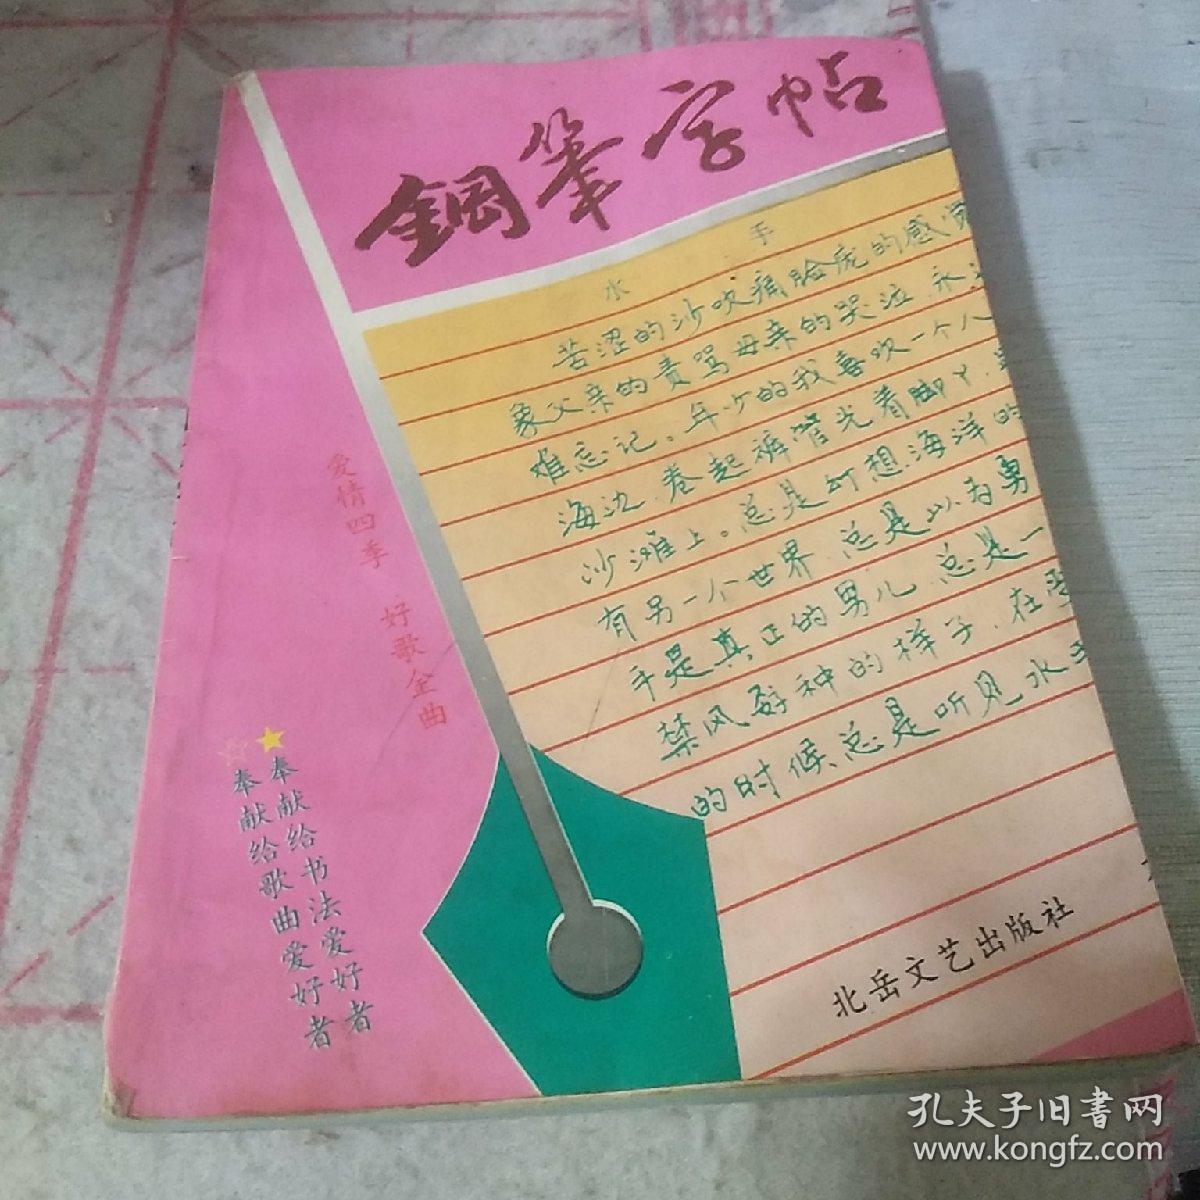 鋼筆字帖
水手
苦涩的沙吹痛脸庞的感觉
象父亲的责骂母亲的哭泣、永远
难忘记。年少的我喜欢一个人
海边、卷起裤管光着脚丫、
沙滩上。总是幻想海洋的
有另一个世界、总是以为勇
手是真正的男儿、总是一
禁风孬种的样子、在受
的时候总是听见水手
爱情四季 好歌金曲
奉献给书法爱好者
奉献给歌曲爱好者
北岳文艺出版社
孔夫子旧书网
www.kongfz.com